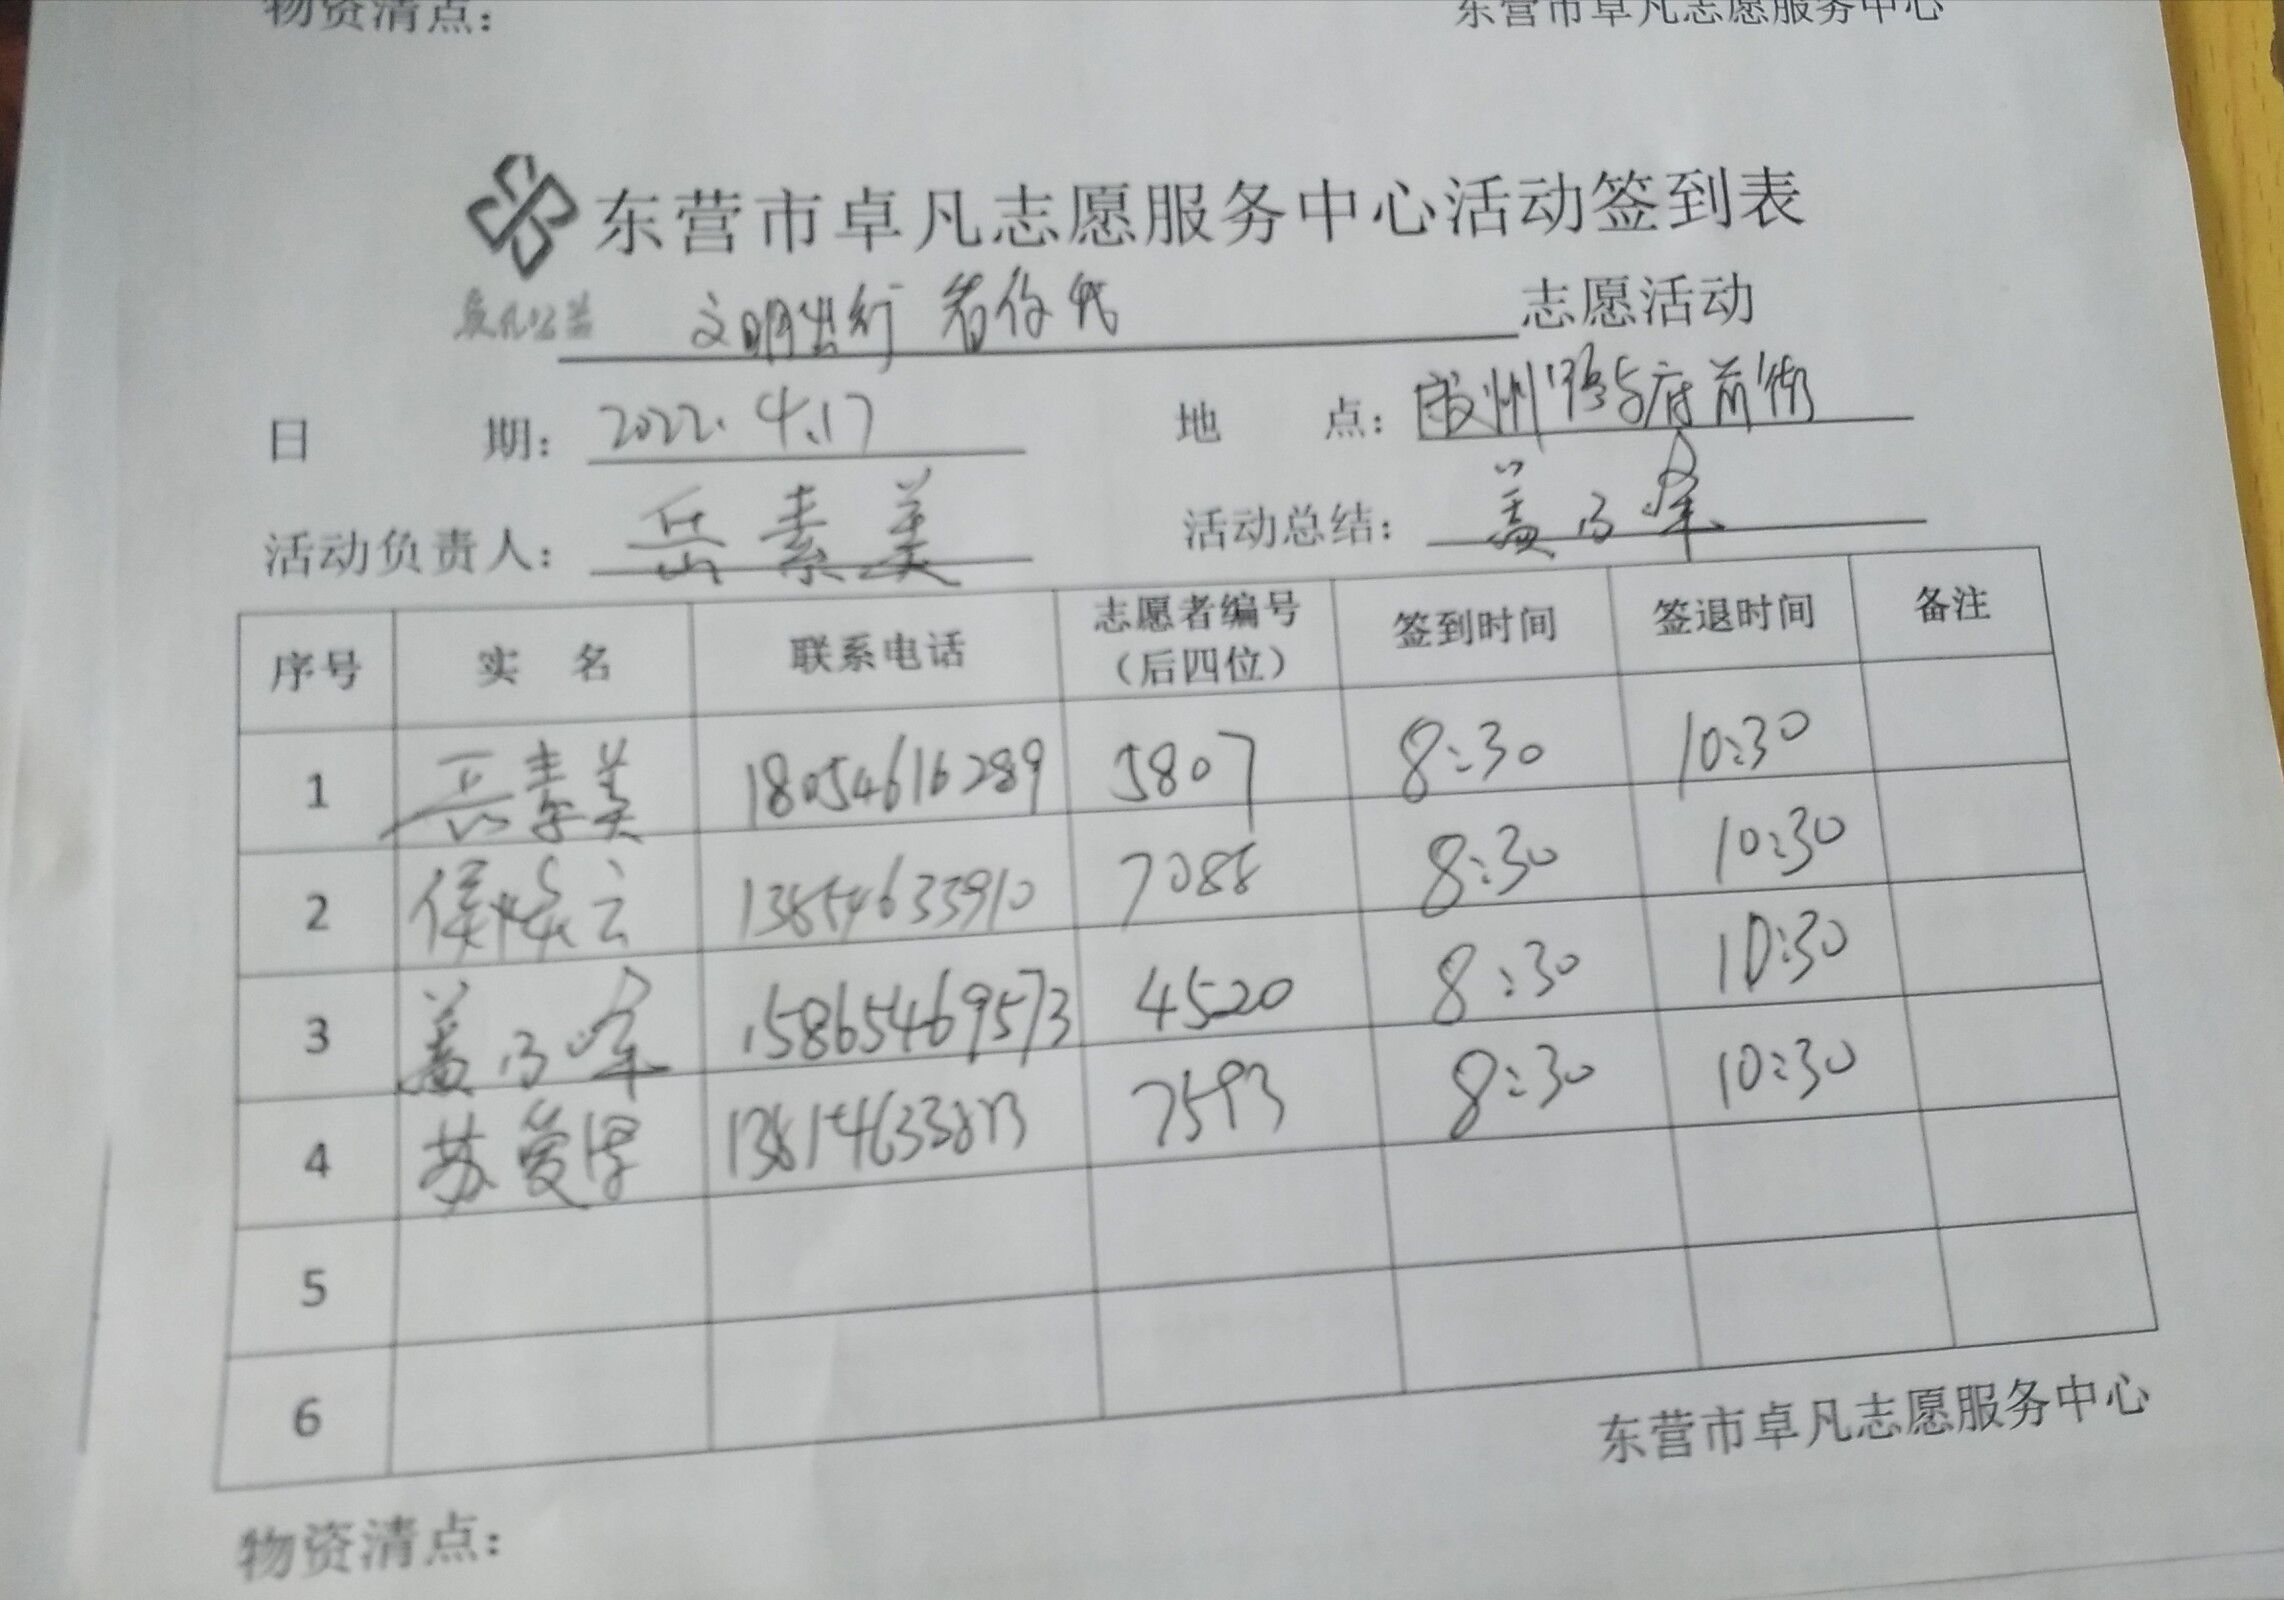 物资清点：
东营市卓凡志愿服务中心
东营市卓凡志愿服务中心活动签到表
卓凡公益
文明出行 有你我 志愿活动
日 期： 2022.4.17 地 点： 胶州路与府前街
活动负责人： 岳素美 活动总结： 盖
序号 实 名 联系电话 志愿者编号（后四位） 签到时间 签退时间 备注
1 岳素美 18054616289 5807 8:30 10:30
2 侯 云 13854633910 7088 8:30 10:30
3 盖 15865469573 4520 8:30 10:30
4 苏爱 7593 8:30 10:30
5
6
东营市卓凡志愿服务中心
物资清点：